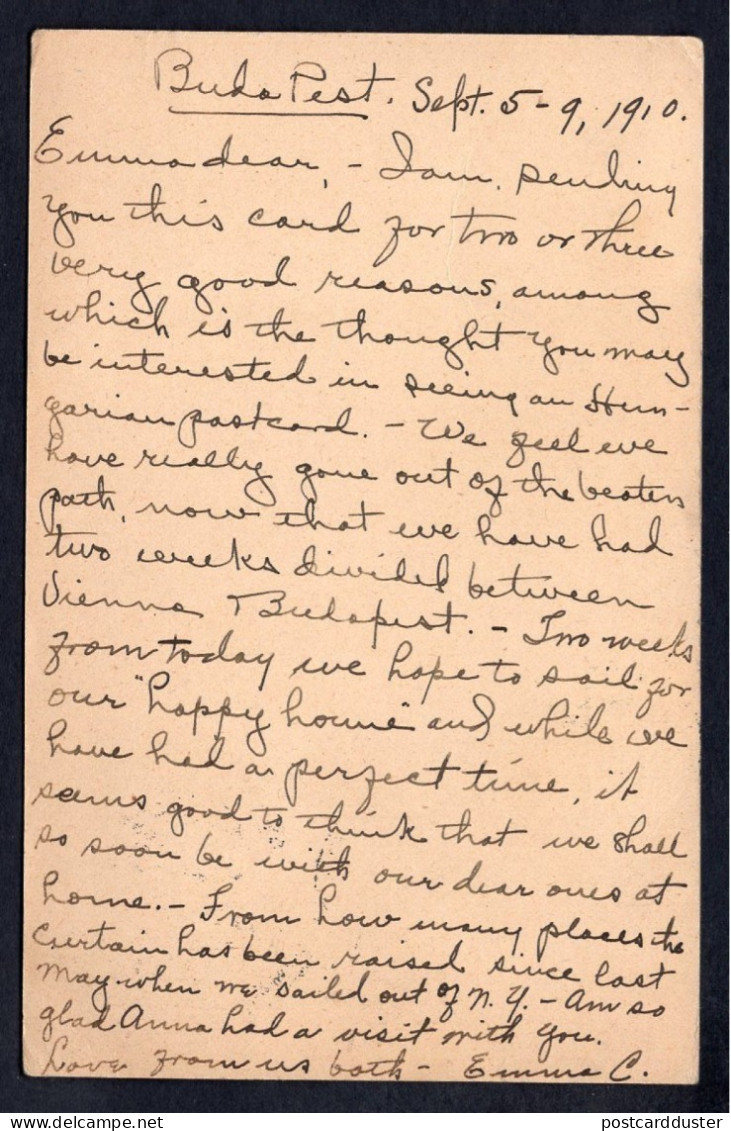 BudaPest. Sept. 5-9, 1910.
Emma dear, - I am sending
you this card for two or three
very good reasons, among
which is the thought you may
be interested in seeing an Hun-
garian postcard. - We feel we
have really gone out of the beaten
path, now that we have had
two weeks divided between
Vienna Budapest. - Two weeks
from today we hope to sail for
our "happy home" and while we
have had a perfect time, it
seems good to think that we shall
so soon be with our dear ones at
home. - From how many places the
curtain has been raised since last
May when we sailed out of N.Y. - Am so
glad Anna had a visit with you.
Love from us both - Emma C.
postcardduster